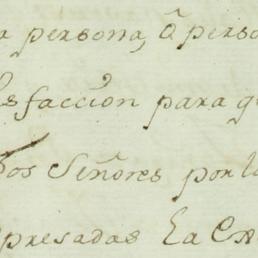 r persona, ô perso
isfaccion para q
dos Señores por l
presadas La Cx